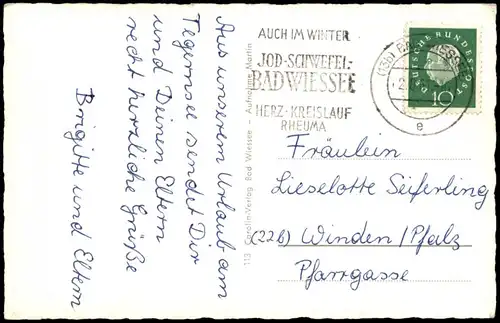 Aus unserem Urlaub am
Tegernsee sendet Dir
und Deinen Eltern
recht herzliche Grüße
Brigitte und Eltern
113 Carolin-Verlag Bad Wiessee - Aufnahme Martin
AUCH IM WINTER
JOD-SCHWEFEL-
BAD WIESSEE
HERZ-KREISLAUF
RHEUMA
(13b) BAD WIESSEE
e
DEUTSCHE BUNDESPOST
10
Fräulein
Lieselotte Seiferling
(22b) Winden/Pfalz
Pfarrgasse